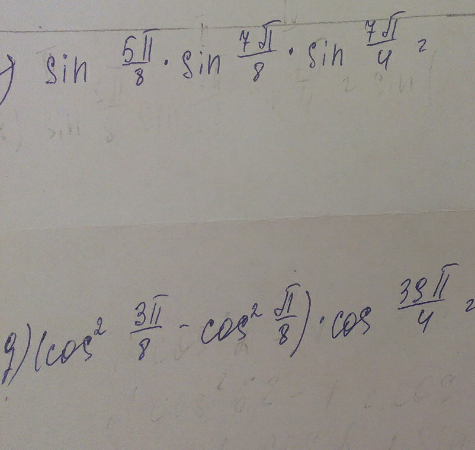 ) sin 5π/8 · sin 7π/8 · sin 7π/4 =
g) (cos² 3π/8 - cos² π/8) · cos 39π/4 =